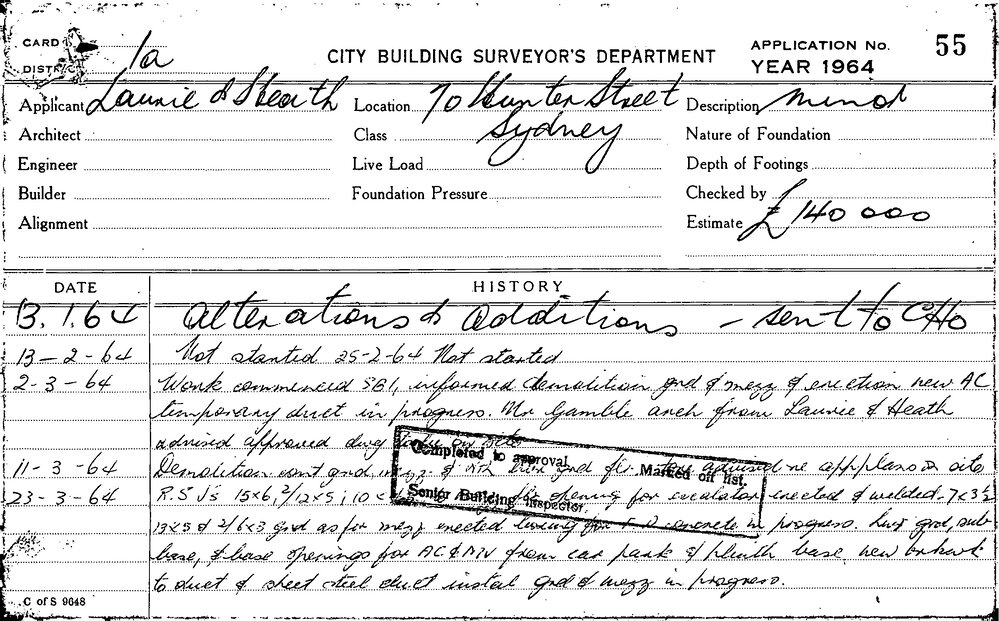 CARD
DISTRICT 1a
CITY BUILDING SURVEYOR'S DEPARTMENT
APPLICATION No. 55
YEAR 1964
Applicant Laurie & Heath Location 70 Hunter Street Description
Architect Class Sydney Nature of Foundation
Engineer Live Load Depth of Footings
Builder Foundation Pressure Checked by
Alignment Estimate £140 000
DATE HISTORY
13.1.64 Alterations & additions - sent to CHO
13-2-64 Not started 25-2-64 Not started
2-3-64 Work commenced SBI, informed demolition grd & mezz & erection new AC
temporary duct in progress. Mr Gamble arch from Laurie & Heath
advised approved dwg to be on site
11-3-64 Demolition cont grd mezz & grd flr advised re app plans on site
23-3-64 R.S.J's 15x6, 2/12x5; 10x opening for escalator erected & welded - 7x3½
13x5 & 2/6x3 grd as for mezz erected concrete in progress. grd, sub
base, & base openings for AC & from car park & plinth base new brkwk
to duct & sheet steel duct instal grd & mezz in progress.
Completed to approval
Marked off list.
Senior Building Inspector.
C of S 9648